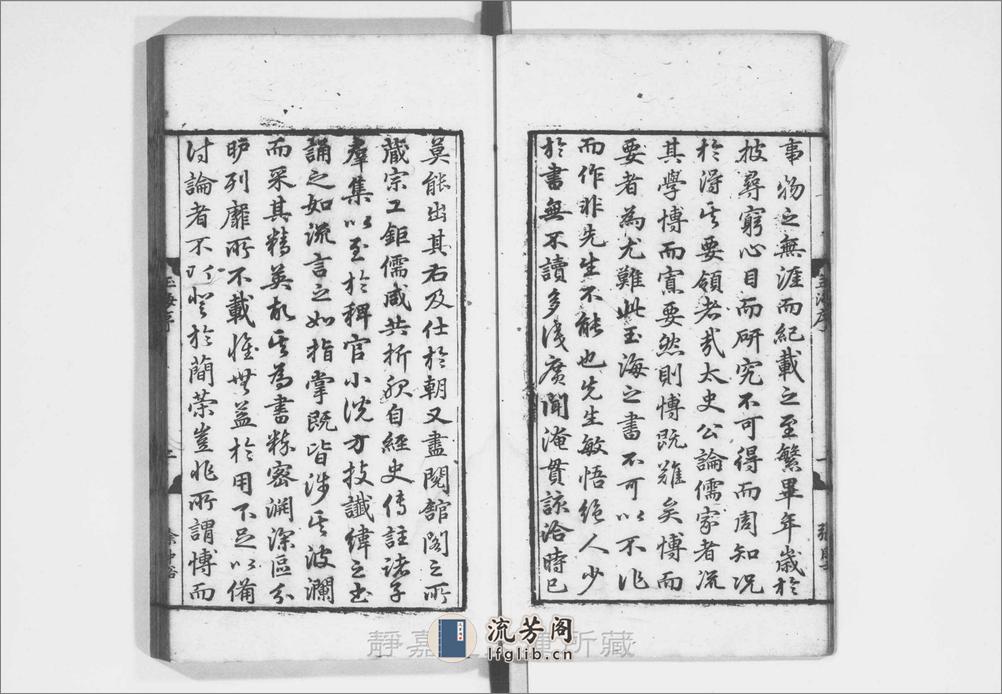 事物之無涯而紀載之至繁畢年歲於
披尋窮心目而研究不可得而周知况
於得其要領者哉太史公論儒家者流
其學博而寡要然則博既難矣博而
要者為尤難此玉海之書不可以不作
而作非先生不能也先生敏悟絶人少
於書無不讀多識廣聞淹貫該洽時已
玉海序
二
莫能出其右及仕於朝又盡閱舘閣之所
藏宗工鉅儒咸共折服自經史傳註諸子
羣集以至於稗官小說方技讖緯之書
誦之如流言之如指掌既皆涉其波瀾
而采其精英故其為書粹密淵深區分
臚列靡所不載惟無益於用不足以備
討論者不以登於簡策豈非所謂博而
玉海序
二
靜嘉
所藏
流芳阁
lfglib.cn